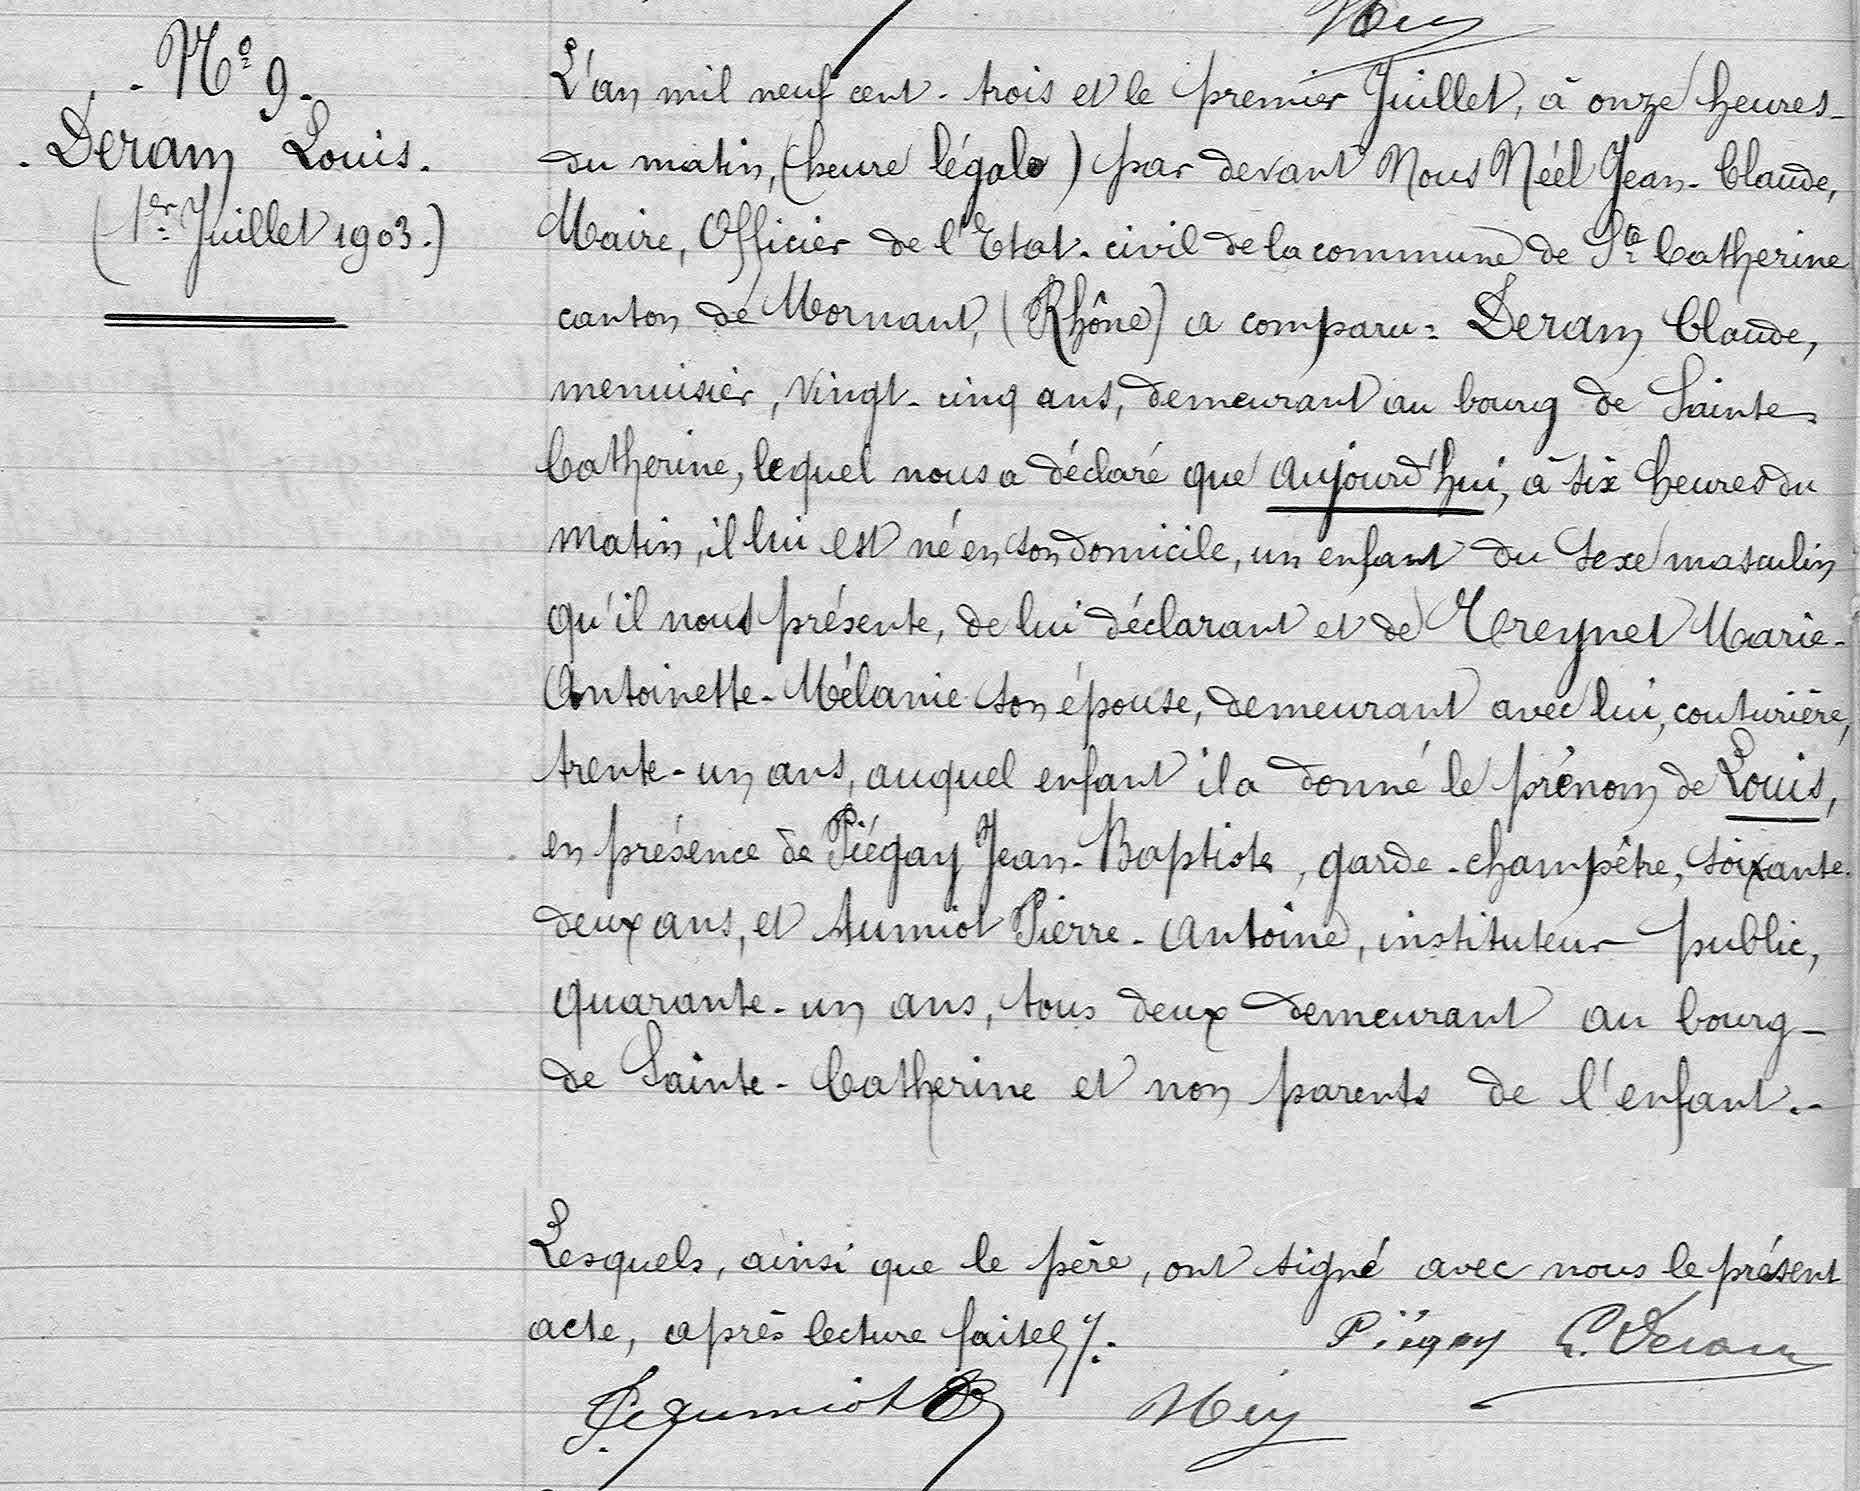 N° 9.
Deram Louis.
(1er Juillet 1903.)
L'an mil neuf cent-trois et le premier Juillet, à onze heures
du matin, (heure légale) par devant Nous Néel Jean-Claude,
Maire, Officier de l'Etat-civil de la commune de Ste Catherine
canton de Mornant, (Rhône) a comparu: Deram Claude,
menuisier, vingt-cinq ans, demeurant au bourg de Sainte-
Catherine, lequel nous a déclaré que aujourd'hui, à six heures du
matin, il lui est né en son domicile, un enfant du sexe masculin
qu'il nous présente, de lui déclarant et de Treynet Marie-
Antoinette-Mélanie son épouse, demeurant avec lui, couturière,
trente-un ans, auquel enfant il a donné le prénom de Louis,
en présence de Piégay Jean-Baptiste, garde-champêtre, soixante-
deux ans, et Aumiot Pierre-Antoine, instituteur public,
quarante-un ans, tous deux demeurant au bourg-
de Sainte-Catherine et non parents de l'enfant.-
Lesquels, ainsi que le père, ont signé avec nous le présent
acte, après lecture faite./.
Piégay C. Deram